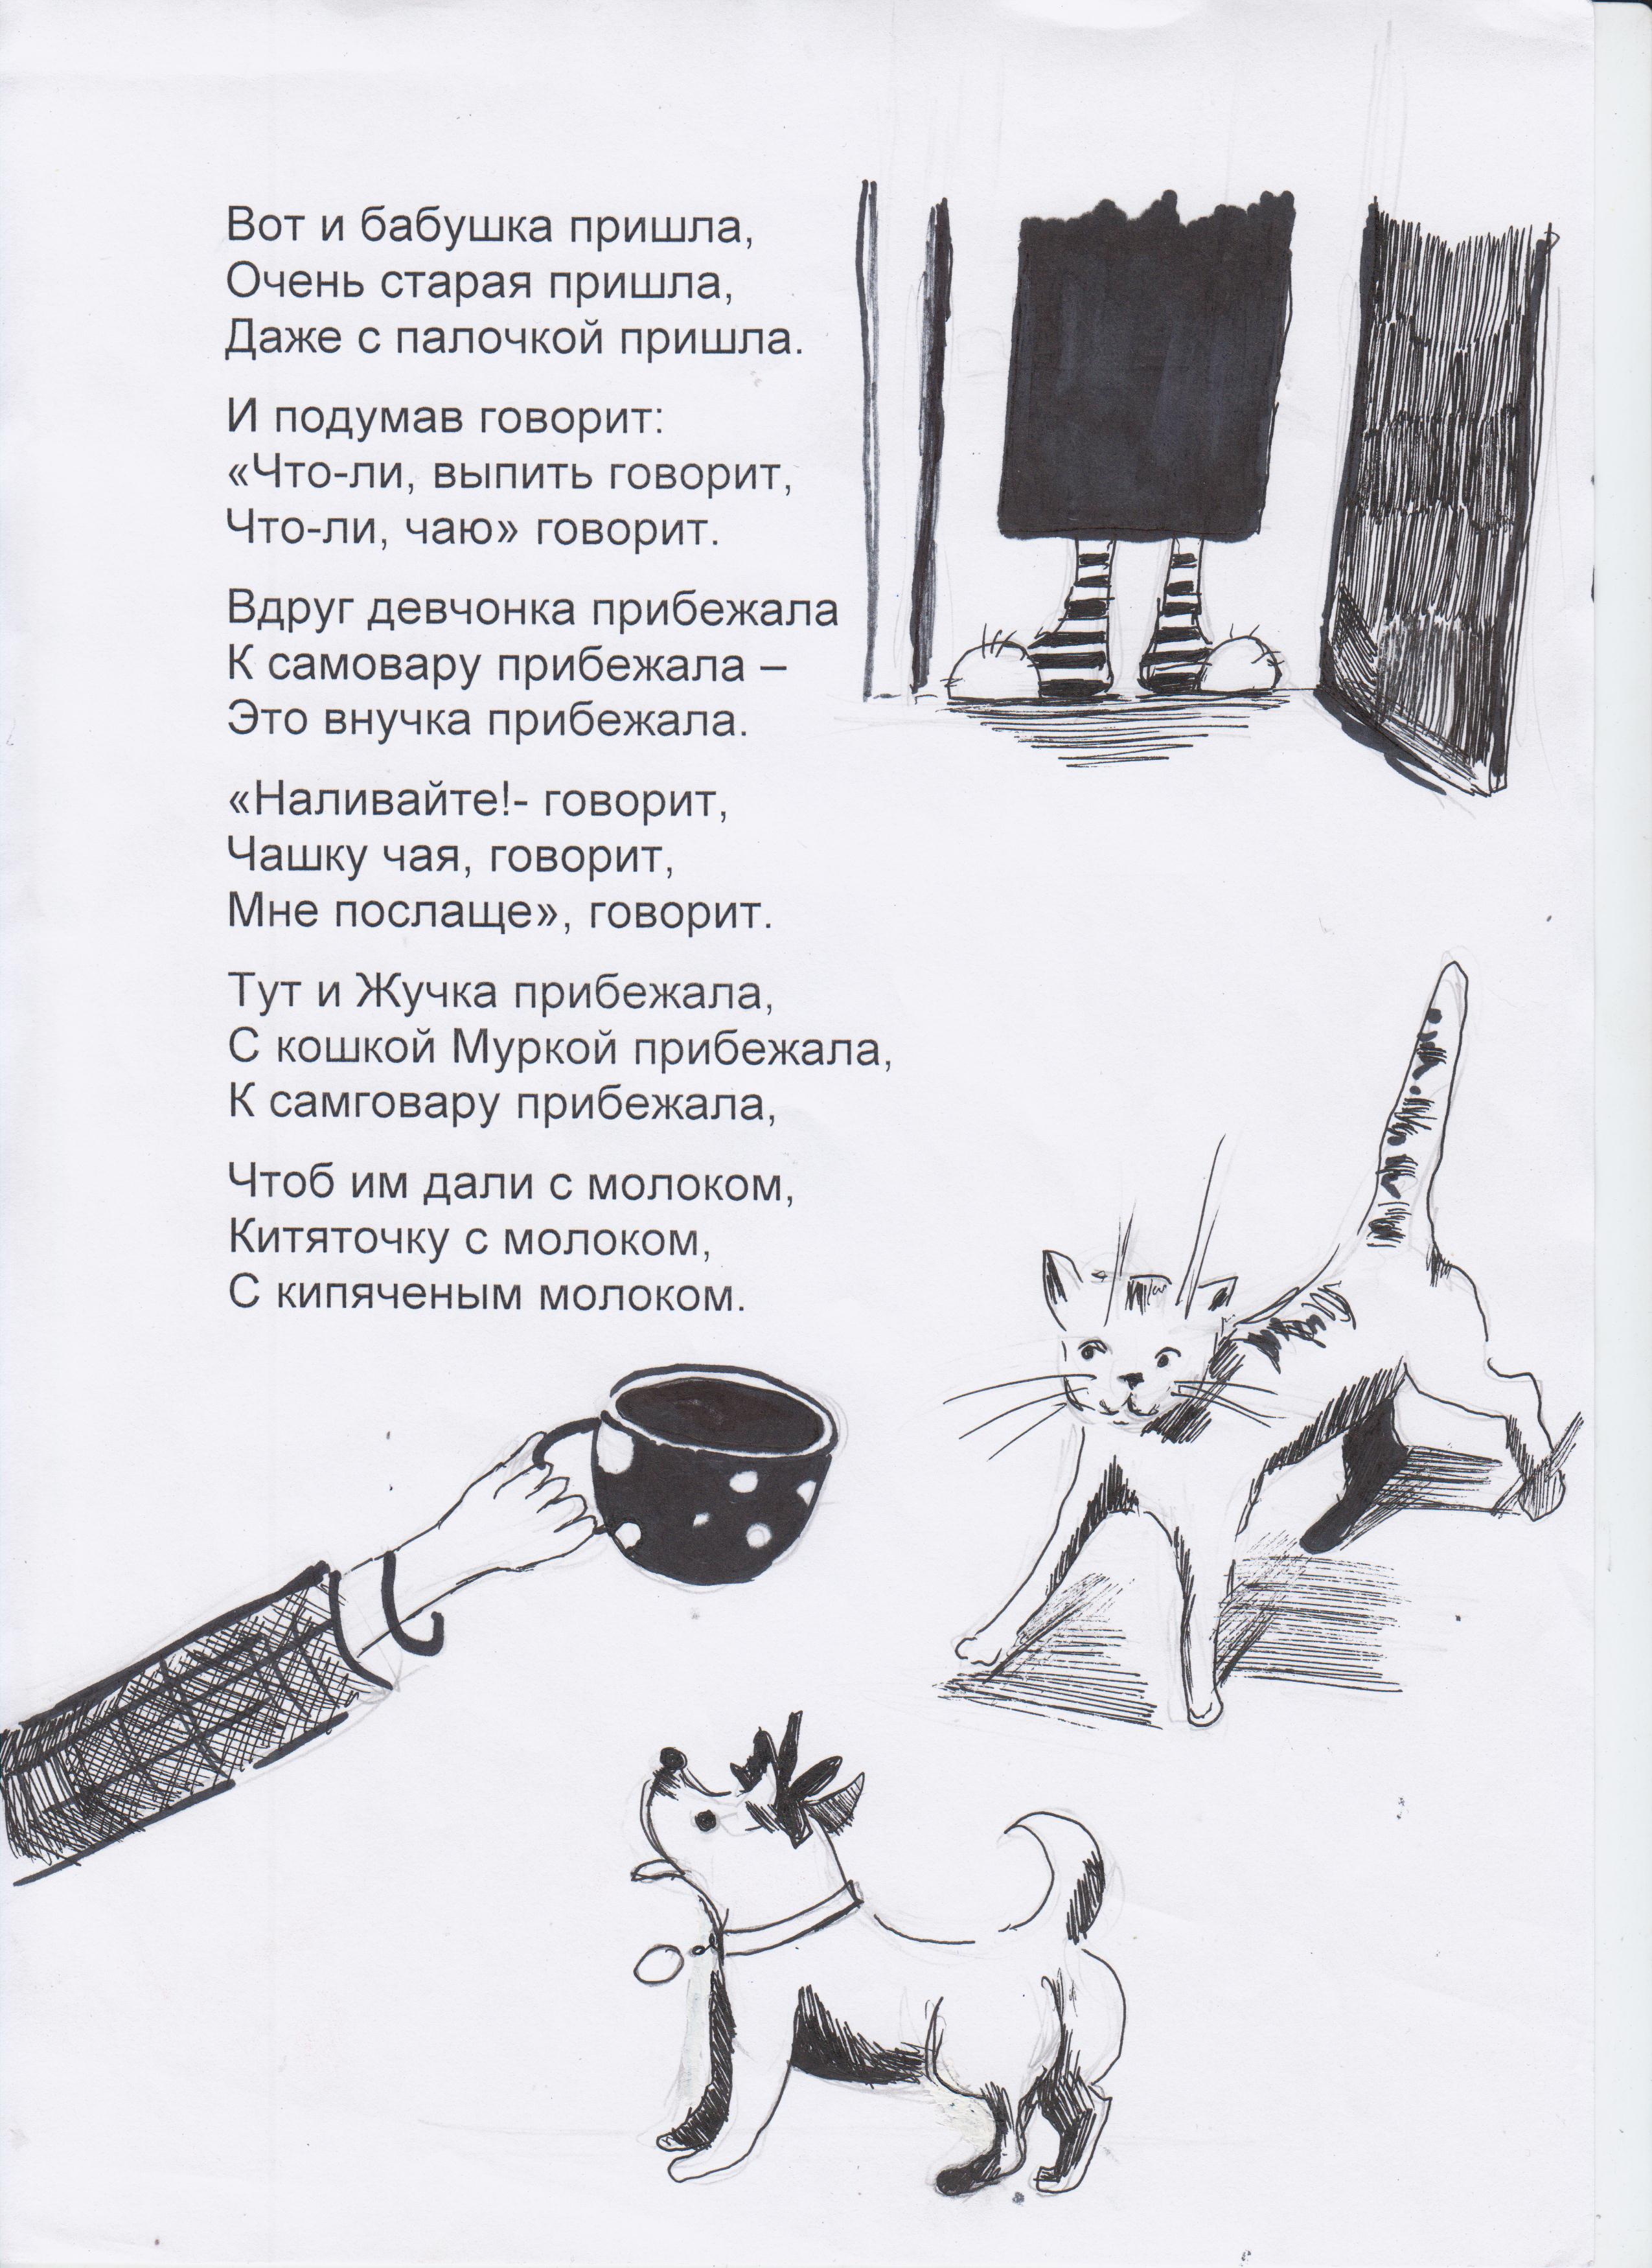 Вот и бабушка пришла,
Очень старая пришла,
Даже с палочкой пришла.
И подумав говорит:
«Что-ли, выпить говорит,
Что-ли, чаю» говорит.
Вдруг девчонка прибежала
К самовару прибежала –
Это внучка прибежала.
«Наливайте!- говорит,
Чашку чая, говорит,
Мне послаще», говорит.
Тут и Жучка прибежала,
С кошкой Муркой прибежала,
К самговару прибежала,
Чтоб им дали с молоком,
Китяточку с молоком,
С кипяченым молоком.